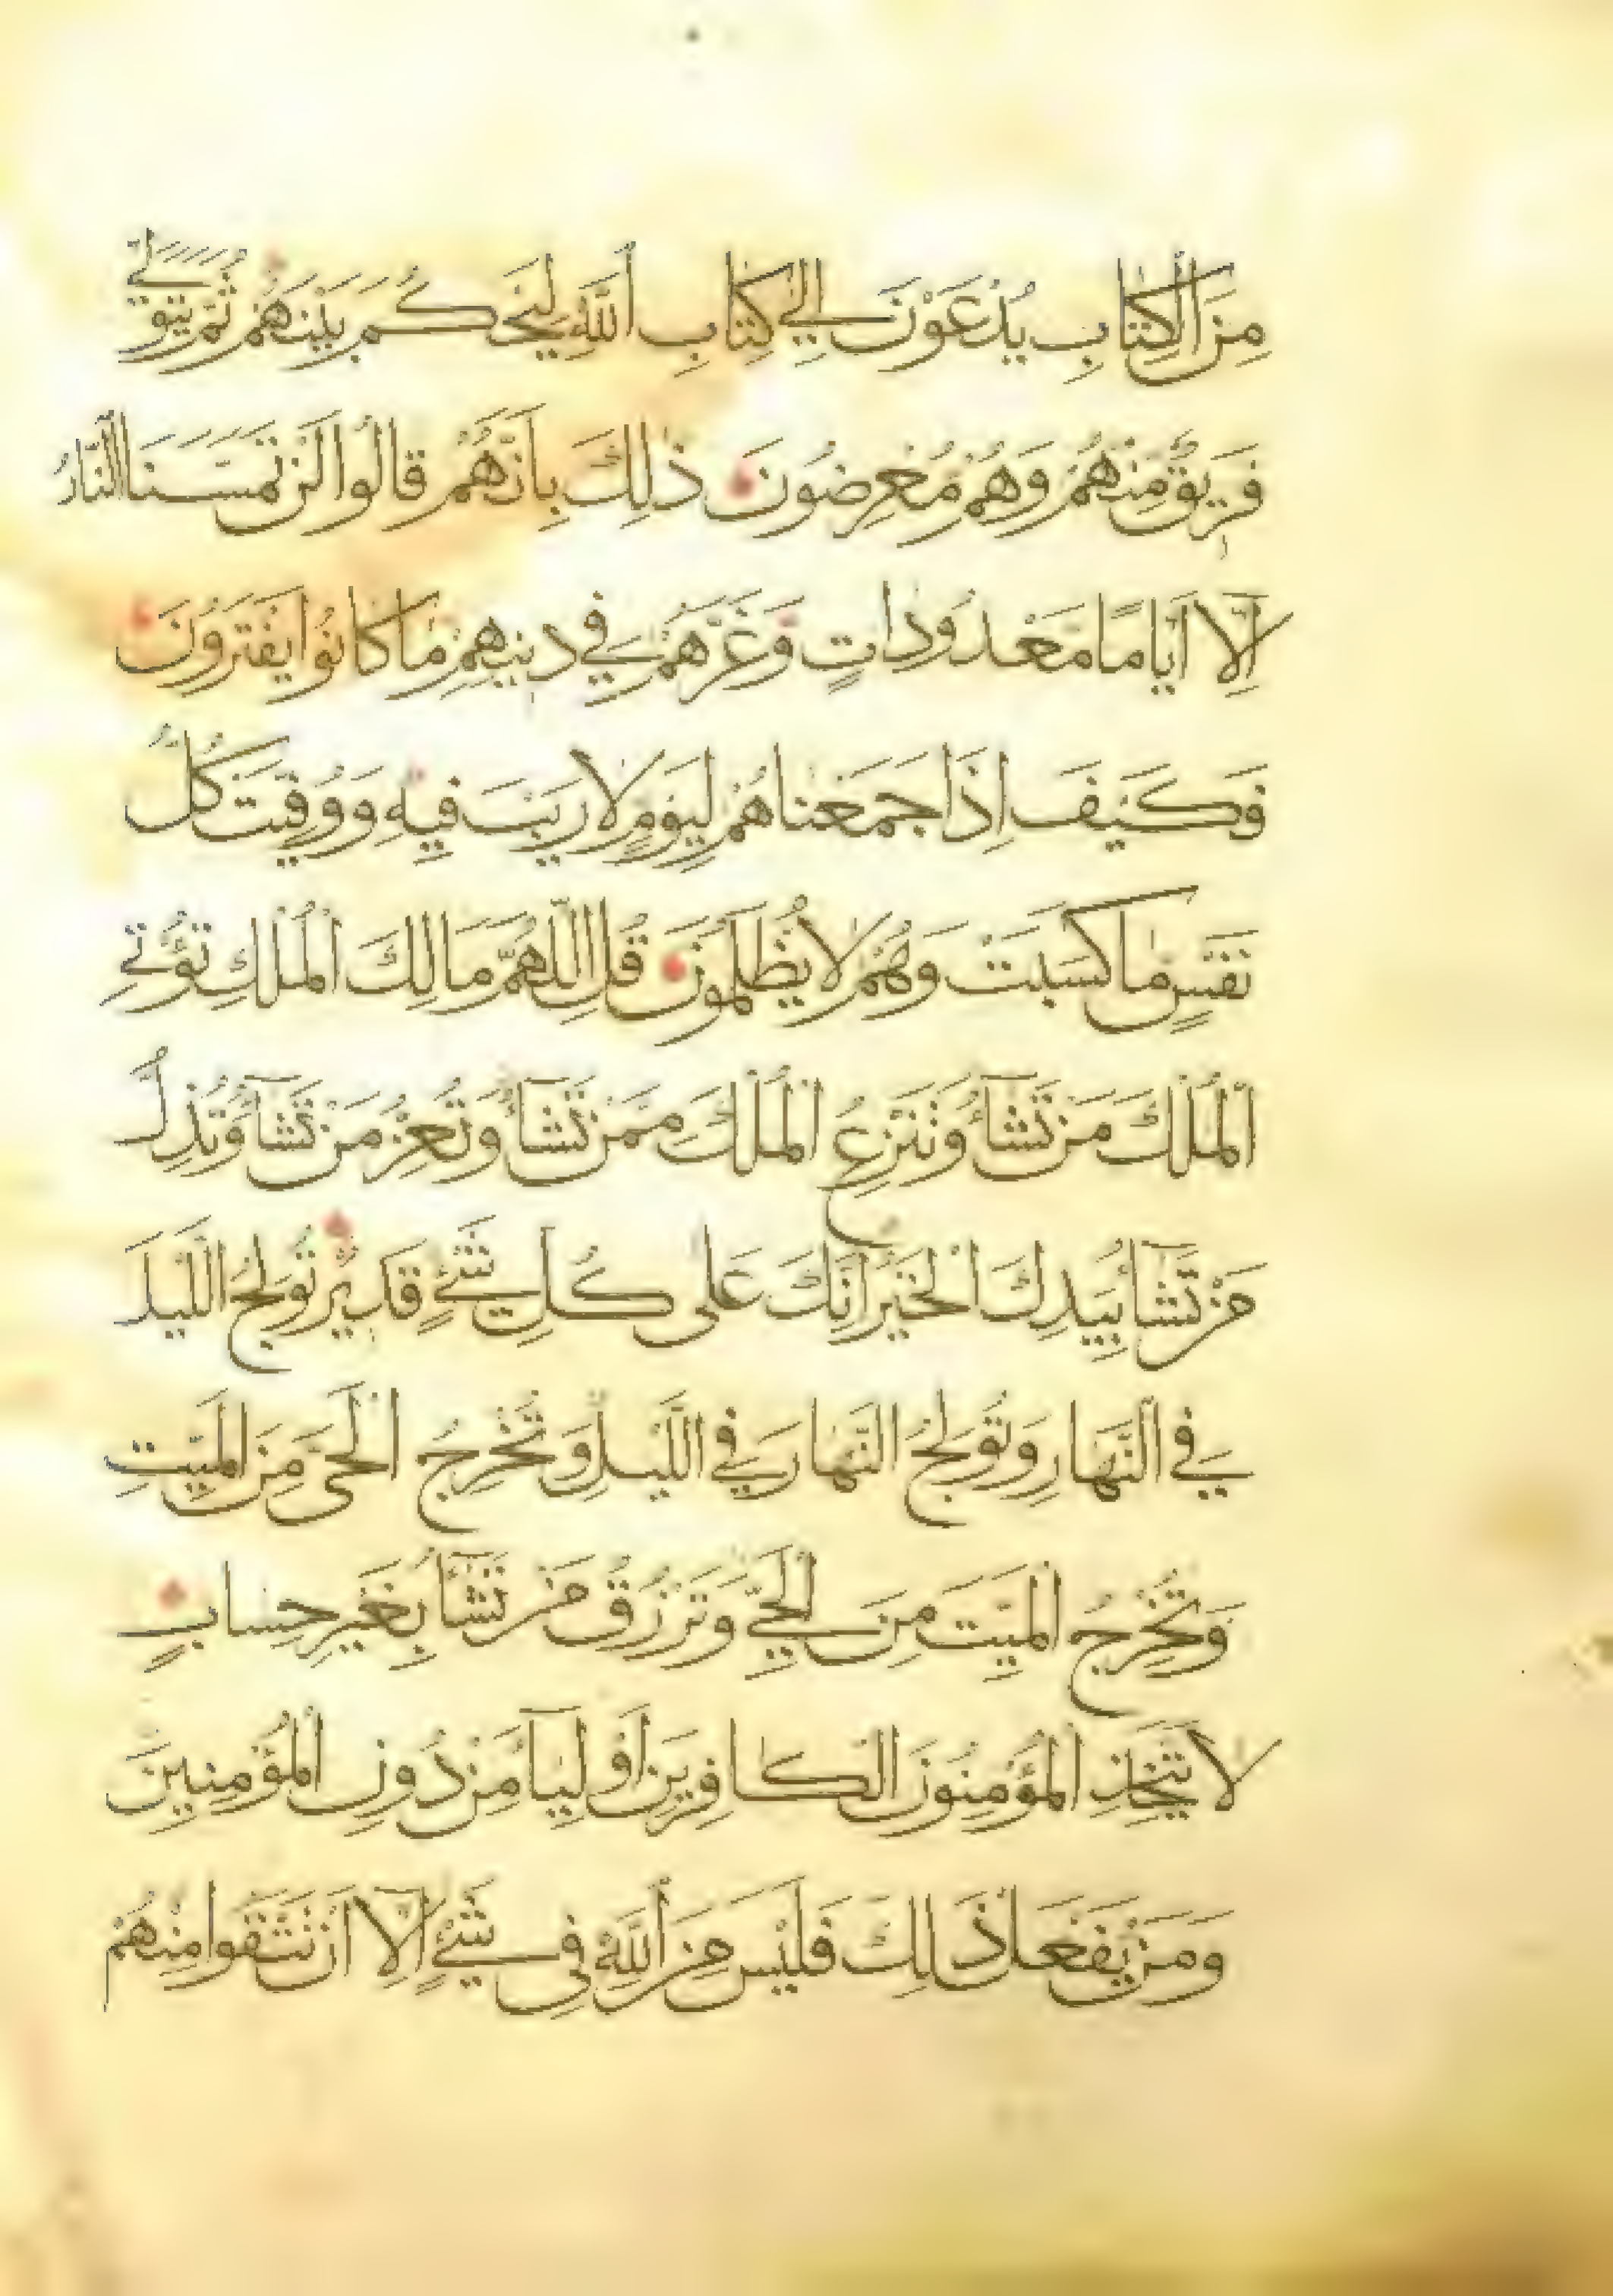 مِنَ الْكِتَابِ يُدْعَوْنَ إِلَى كِتَابِ اللَّهِ لِيَحْكُمَ بَيْنَهُمْ ثُمَّ يَتَوَلَّى
فَرِيقٌ مِنْهُمْ وَهُمْ مُعْرِضُونَ ذٰلِكَ بِأَنَّهُمْ قَالُوا لَنْ تَمَسَّنَا النَّارُ
إِلَّا أَيَّامًا مَعْدُودَاتٍ وَغَرَّهُمْ فِي دِينِهِمْ مَا كَانُوا يَفْتَرُونَ
فَكَيْفَ إِذَا جَمَعْنَاهُمْ لِيَوْمٍ لَا رَيْبَ فِيهِ وَوُفِّيَتْ كُلُّ
نَفْسٍ مَا كَسَبَتْ وَهُمْ لَا يُظْلَمُونَ قُلِ اللَّهُمَّ مَالِكَ الْمُلْكِ تُؤْتِي
الْمُلْكَ مَنْ تَشَآءُ وَتَنْزِعُ الْمُلْكَ مِمَّنْ تَشَآءُ وَتُعِزُّ مَنْ تَشَآءُ وَتُذِلُّ
مَنْ تَشَآءُ بِيَدِكَ الْخَيْرُ إِنَّكَ عَلَى كُلِّ شَيْءٍ قَدِيرٌ تُولِجُ اللَّيْلَ
فِي النَّهَارِ وَتُولِجُ النَّهَارَ فِي اللَّيْلِ وَتُخْرِجُ الْحَيَّ مِنَ الْمَيِّتِ
وَتُخْرِجُ الْمَيِّتَ مِنَ الْحَيِّ وَتَرْزُقُ مَنْ تَشَآءُ بِغَيْرِ حِسَابٍ
لَا يَتَّخِذِ الْمُؤْمِنُونَ الْكَافِرِينَ أَوْلِيَآءَ مِنْ دُونِ الْمُؤْمِنِينَ
وَمَنْ يَفْعَلْ ذٰلِكَ فَلَيْسَ مِنَ اللَّهِ فِي شَيْءٍ إِلَّا أَنْ تَتَّقُوا مِنْهُمْ